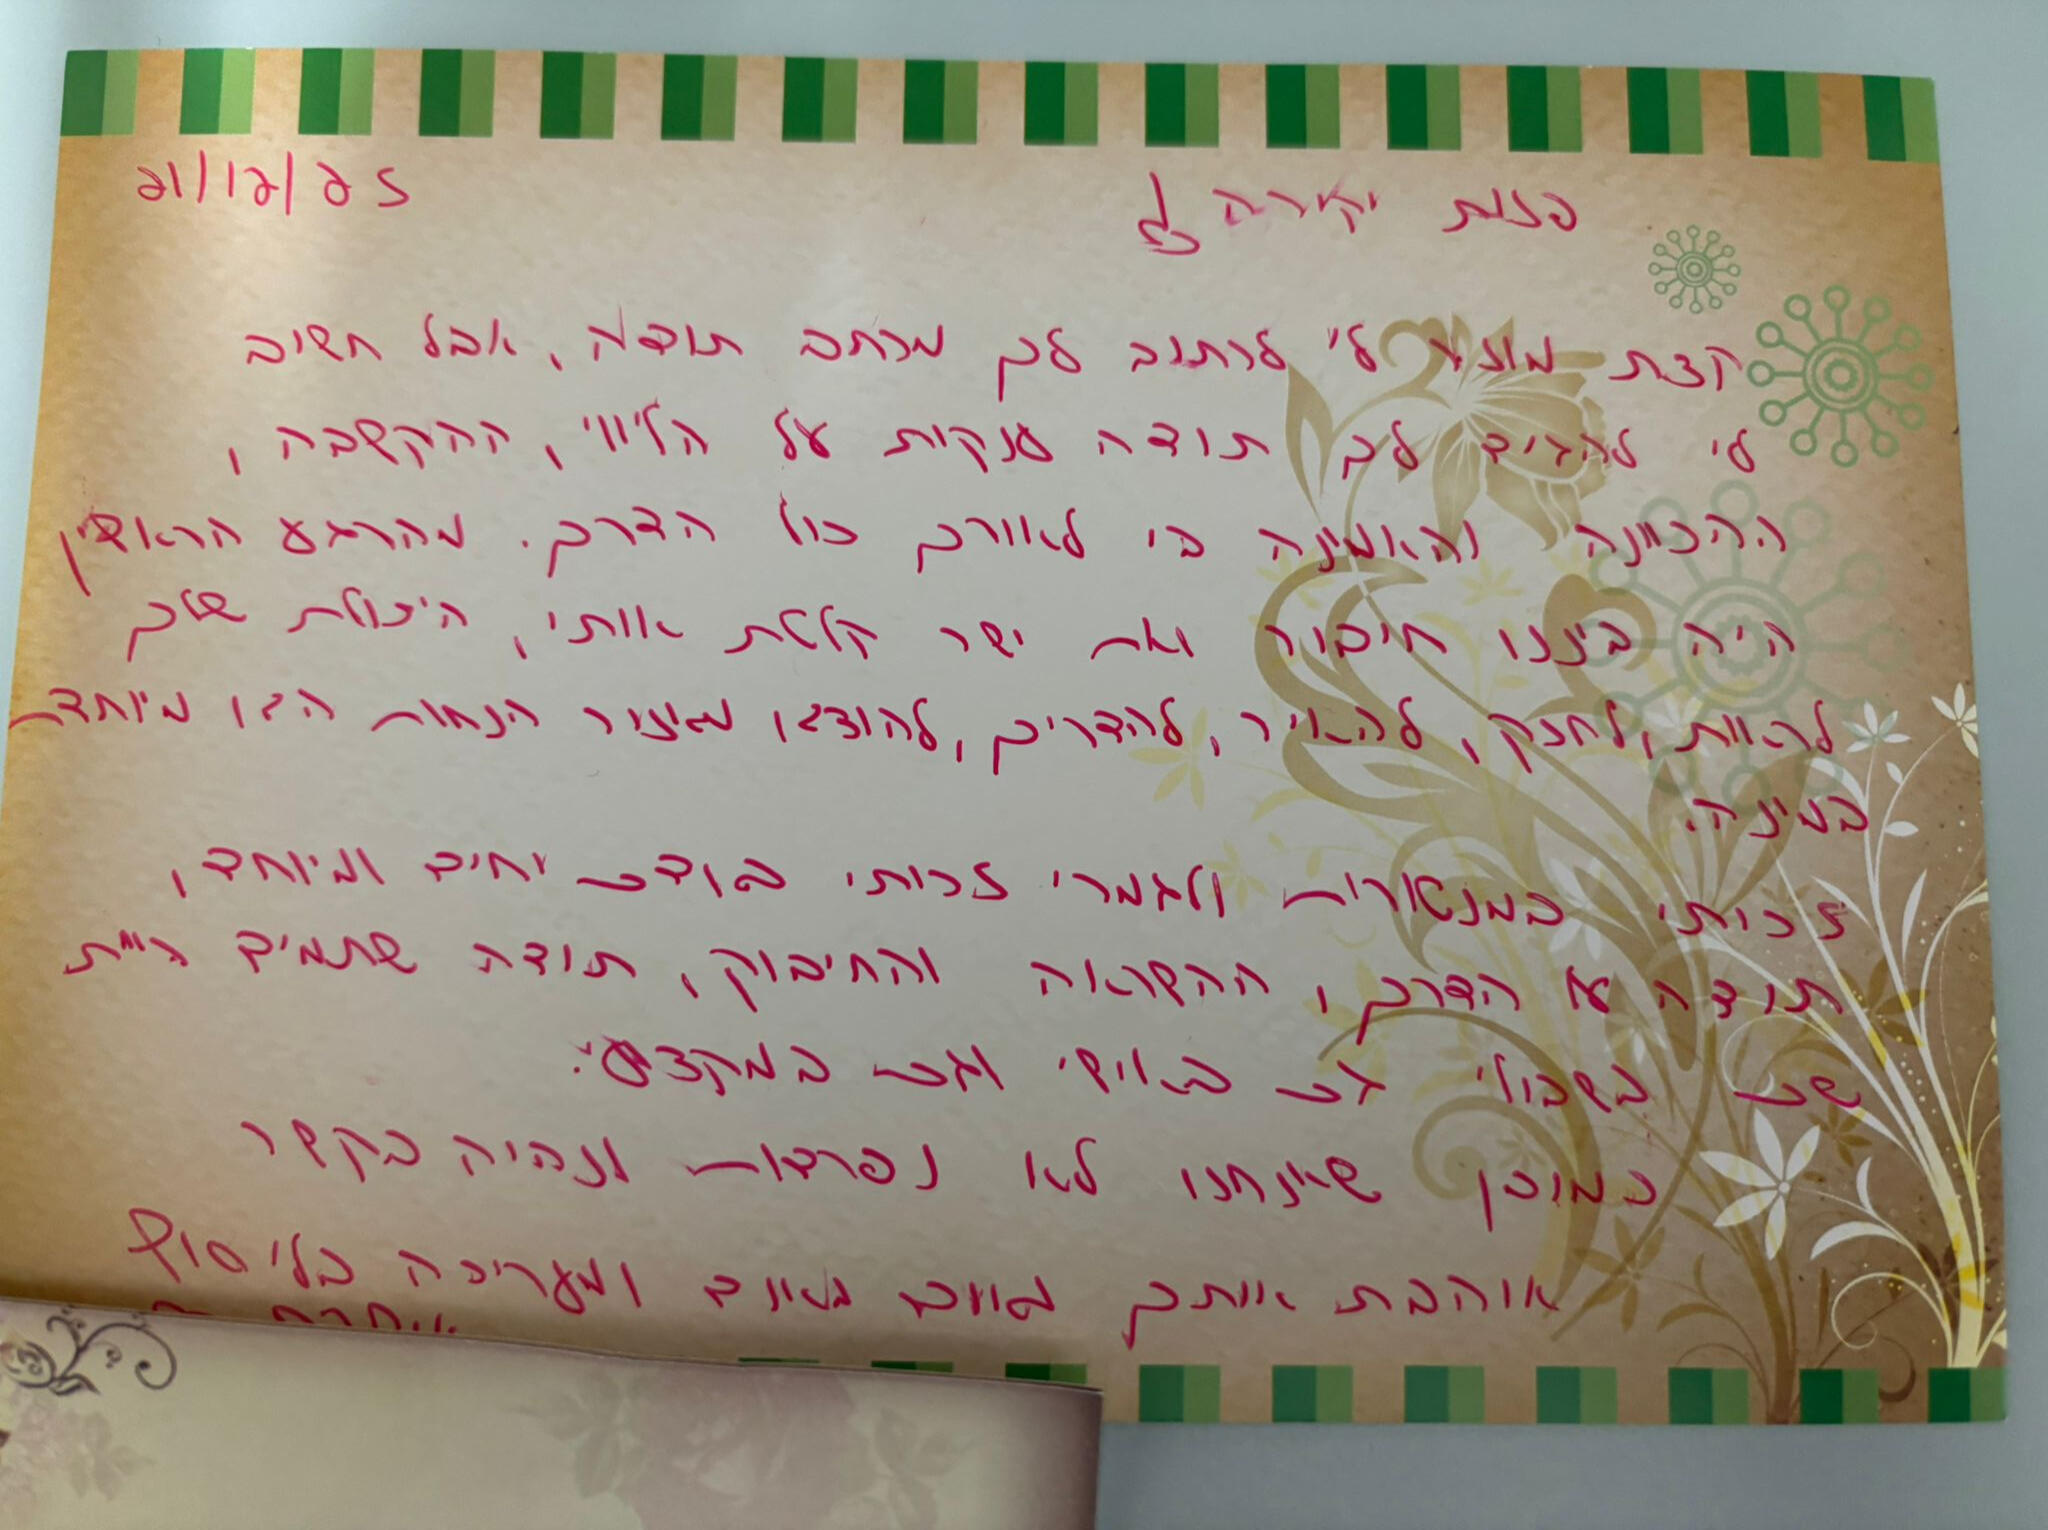 21/12/25
פזית יקירה לי
קצת מוזר לי לכתוב לך מכתב תודה, אבל חשוב
לי להגיד לך תודה ענקית על הליווי, ההקשבה,
ההכוונה והאמונה בי לאורך כול הדרך. מהרגע הראשון
היה ביננו חיבור ואת ישר קלטת אותי, היכולת שלך
לראות, לחזק, להאיר, להדריך, להנחות היא מיוחדת
במינה.
זכיתי ולגמרי זכיתי באדם יחיד ומיוחד,
תודה על הדרך, ההשראה והחיבוק, תודה שתמיד היית
שם בשבילי גם באישי וגם במקצועי.
כמובן שאנחנו לא נפרדות ונהיה בקשר
אוהבת אותך ומעריכה בלי סוף